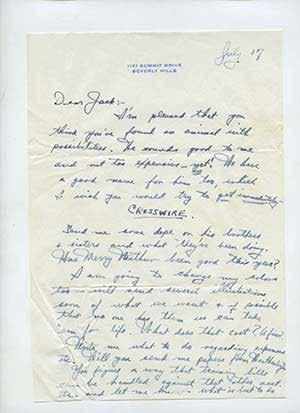 July 17
1121 SUMMIT DRIVE
BEVERLY HILLS
Dear Jack:-
I'm pleased that you
think you've found an animal with
possibilities. He sounds good to me
and not too expensive - yet! We have
a good name for him too, which
I wish you would try to get immediately -
CROSSWIRE.
Send me some dope on his brothers
+ sisters and what they've been doing.
Has Merry been good this year?
I am going to change my colors
too - will send several
some of what we want + if possible
that no one has them so can take
'em for life. What does that cost?
Write me what to do regarding expenses
etc. Will you send me papers
You figure a way that training bills
can be handled against that other acct.
etc. and let me what is best to do